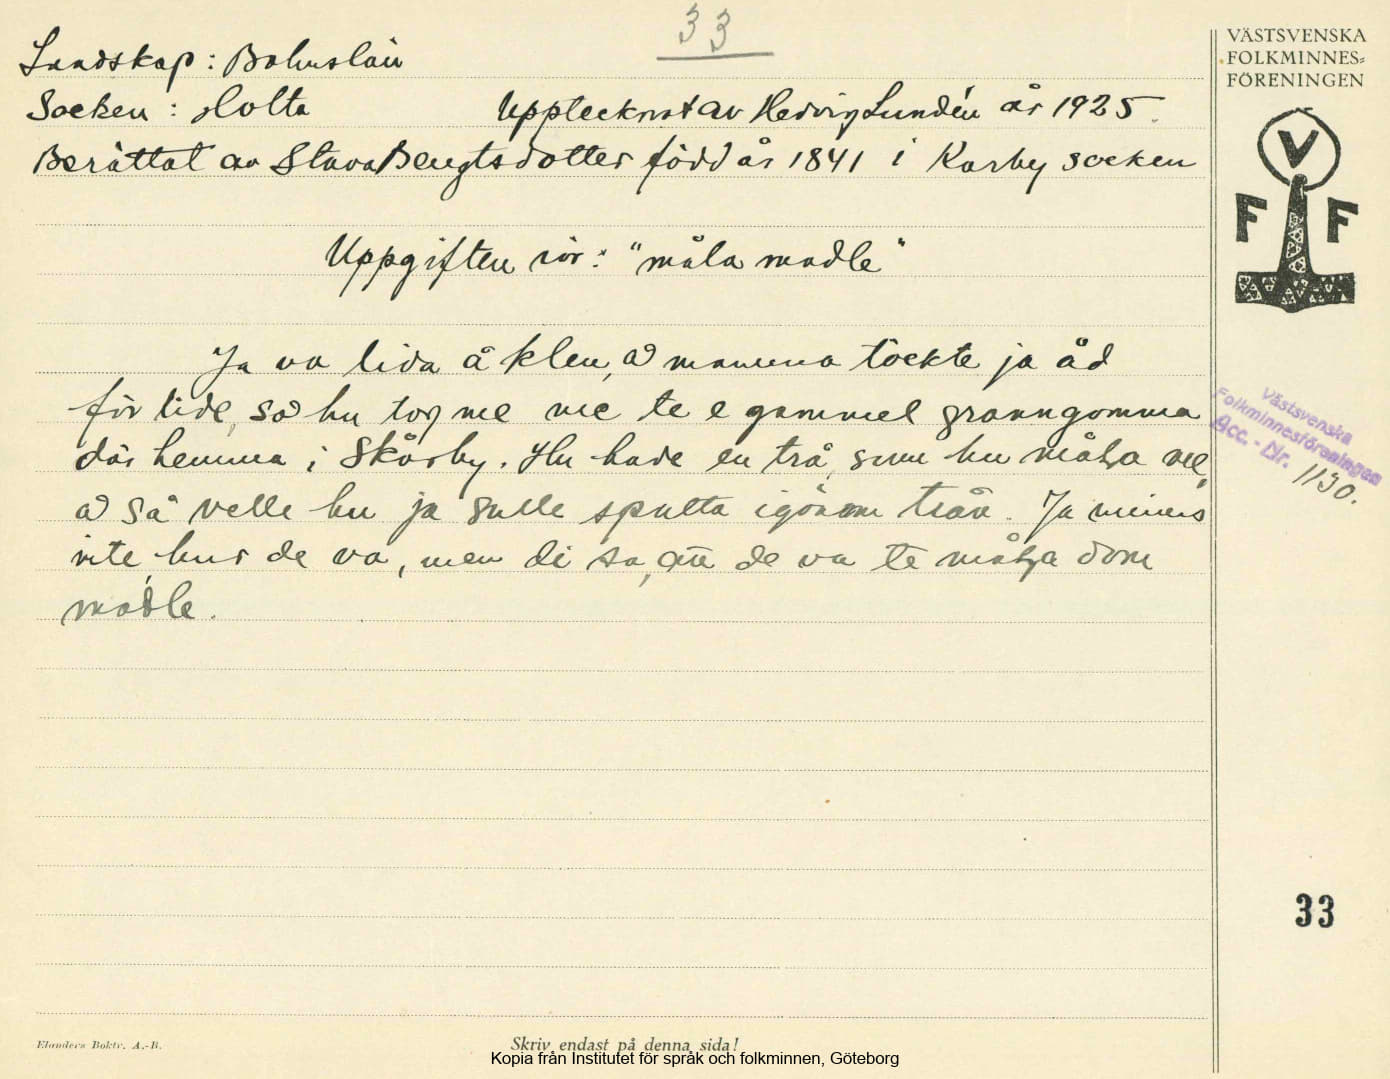 33
Landskap: Bohuslän
Socken: Holta Upptecknat av Hedvig Lundén år 1925.
Berättat av Stava Bengtsdotter född år 1841 i Karby socken
Uppgiften rör: "måla madle"
Ja va lida å klen, å mamma töckte ja åd
för lide, så hu tog me me te e gammel granngomma
där hemma i Skårby. Hu hade en trå, som hu målja me,
å så velle hu ja sulle sputta igönom trån. Ja minns
inte hur de va, men di sa, att de va te målja dom
madle.
VÄSTSVENSKA
FOLKMINNES=
FÖRENINGEN
V
F F
Västsvenska
Folkminnesföreningen
Acc.-Nr. 1130.
33
Elanders Boktr. A.-B.
Skriv endast på denna sida!
Kopia från Institutet för språk och folkminnen, Göteborg